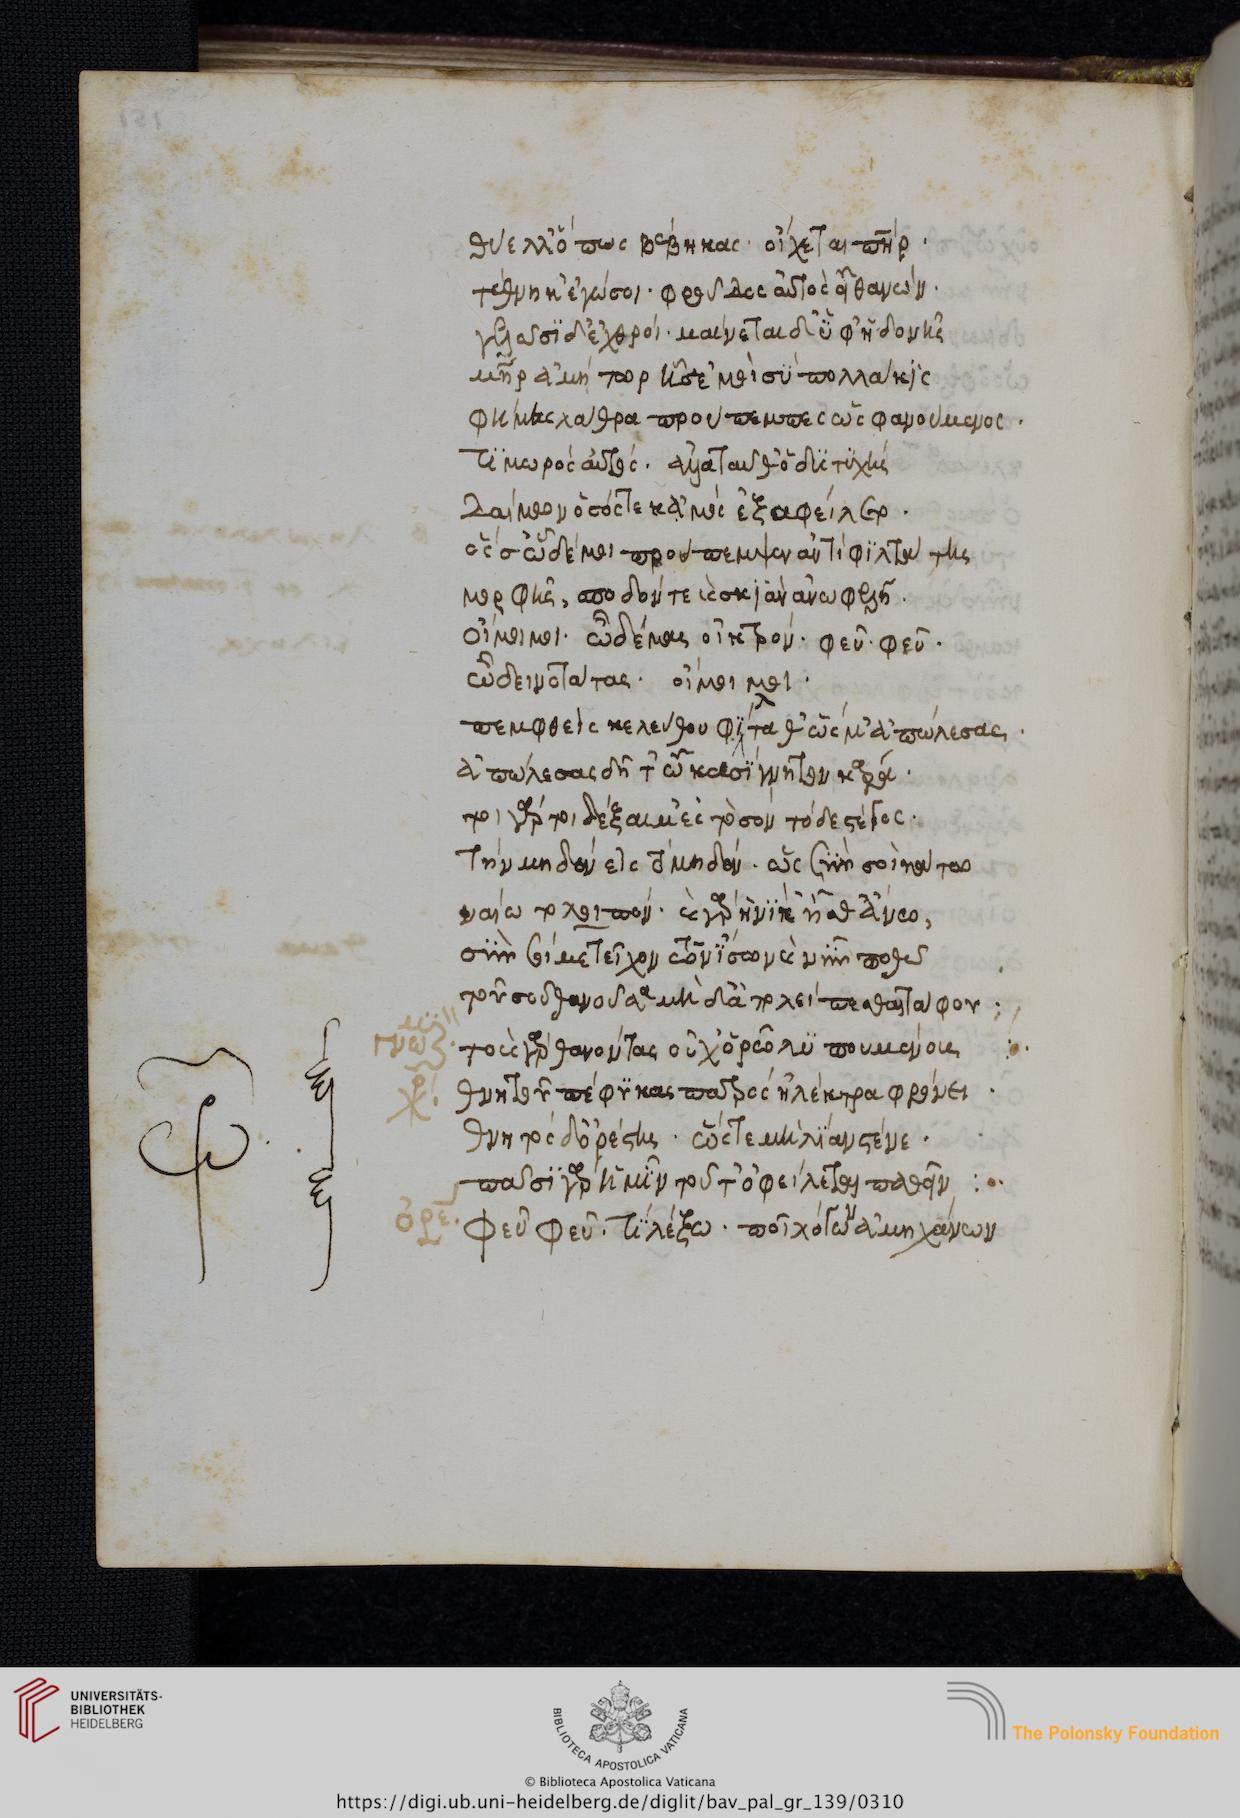 151
θυέλλ' ὅπως βέβηκας. οἴχεται πῆρ.
τέθνηκ' ἐγώ σοι. φροῦδος αὐτὸς εἶ θανών.
γελῶσι δ' ἐχθροί. μαίνεται δ' ὑφ' ἡδονῆς
μῆρ ἀμήτωρ ἧς ἐμοὶ σὺ πολλάκις
φήμας λάθρα προύπεμπες ὡς φανούμενος.
τιμωρὸς αὐτός. ἀλλὰ ταῦθ' ὁ δυστυχὴς
δαίμων ὁ σός τε κἀμὸς ἐξαφείλετο.
ὅς σ' ὧδέ μοι προύπεμψεν ἀντὶ φιλτάτης
μορφῆς, σποδόν τε καὶ σκιὰν ἀνωφελῆ.
οἴμοι μοι. ὦ δέμας οἰκτρόν. φεῦ. φεῦ.
ὦ δεινοτάτας. οἴμοι μοι.
πεμφθεὶς κελεύθου φίλταθ' ὥς μ' ἀπώλεσας.
ἀπώλεσας δῆτ' ὦ κασίγνητον κάρα.
τοιγὰρ σὺ δέξαι μ' ἐς τὸ σὸν τόδε στέγος.
τὴν μηδὲν εἰς τὸ μηδέν. ὡς σὺν σοὶ κάτω
ναίω τὸ λοιπόν. καὶ γὰρ ἡνίκ' ἦσθ' ἄνω,
σὺν σοὶ μετεῖχον τῶν ἴσων καὶ νῦν ποθῶ
τοῦ σοῦ θανοῦσα μὴ ἀπολείπεσθαι τάφου:
τοὺς γὰρ θανόντας οὐχ ὁρῶ λυπουμένους:
χο
θνητοῦ πέφυκας πατρὸς ἠλέκτρα φρόνει.
θνητὸς δ' ὀρέστης. ὥστε μὴ λίαν στένε.
πᾶσι γὰρ ἡμῖν τοῦτ' ὀφείλεται παθεῖν:
ὀρέ.
φεῦ φεῦ. τί λέξω. ποῖ λόγων ἀμηχάνων
UNIVERSITÄTS-
BIBLIOTHEK
HEIDELBERG
BIBLIOTECA APOSTOLICA VATICANA
The Polonsky Foundation
© Biblioteca Apostolica Vaticana
https://digi.ub.uni-heidelberg.de/diglit/bav_pal_gr_139/0310